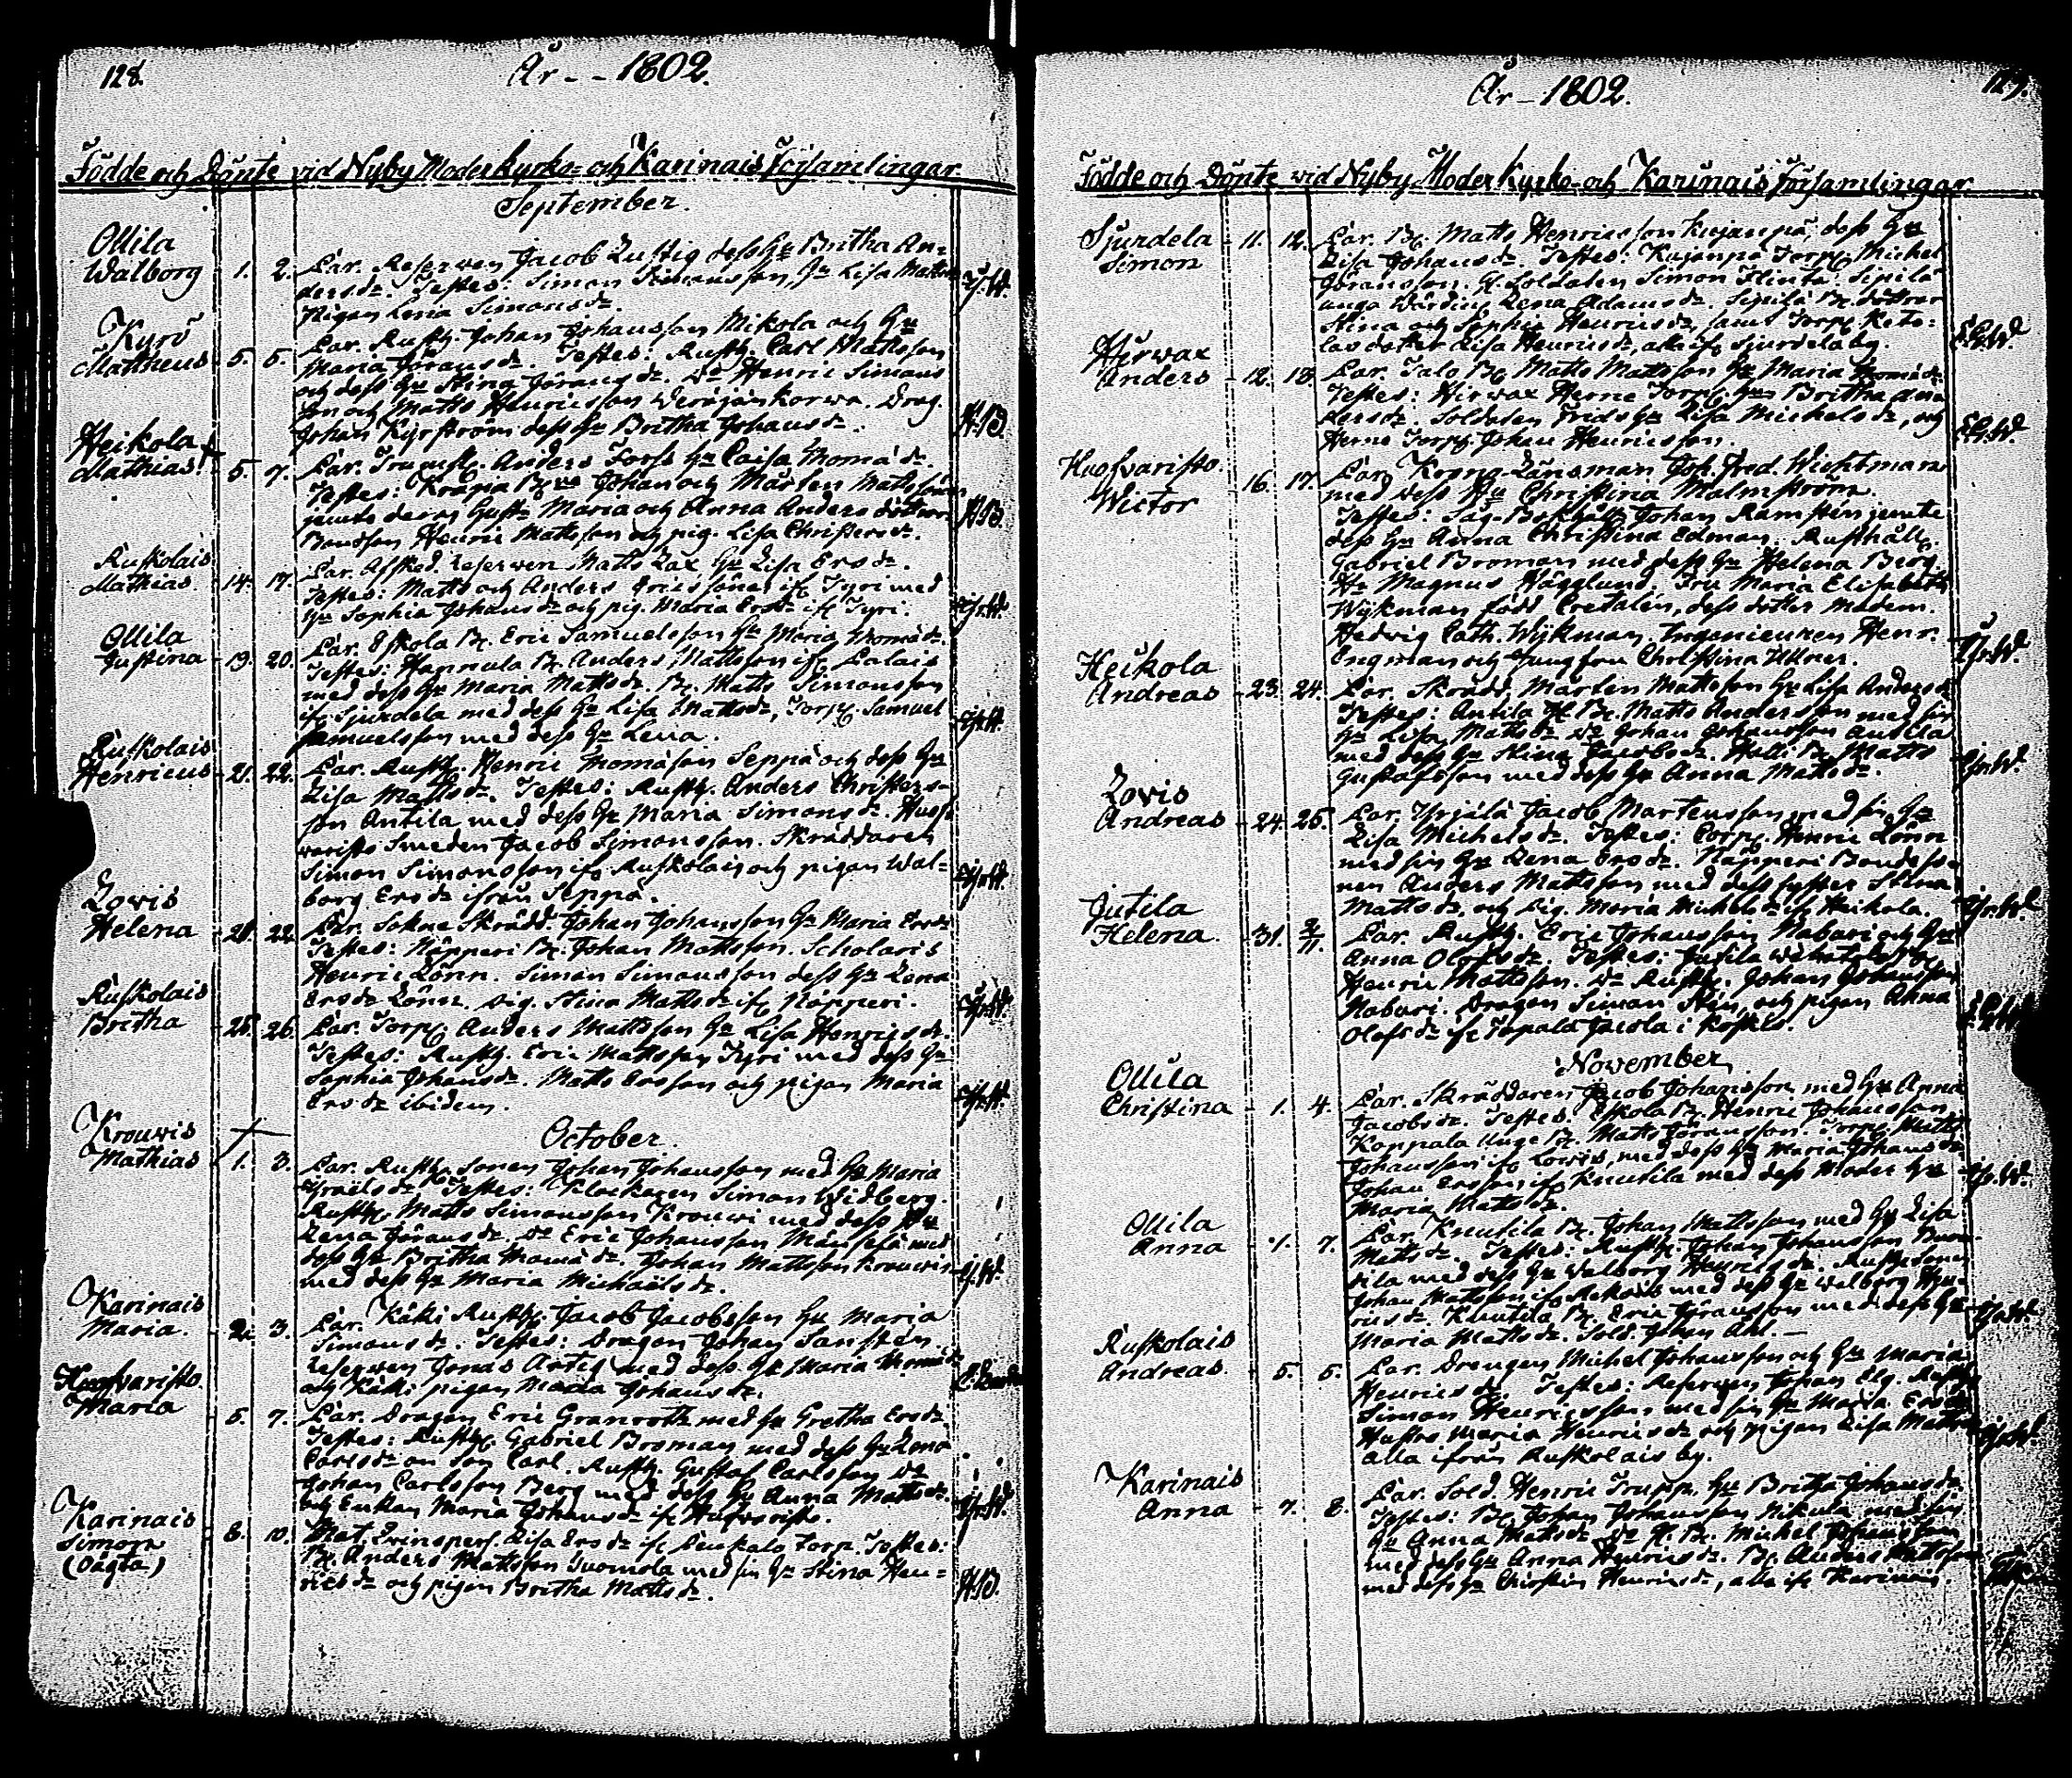 128.
År - - 1802.
Födde och Döpte vid Nyby Moderkyrko- och Karinais Församlingar
September.
Ollila
Walborg 1. 2. Par. Reserven Jacob Lustig dess Hu Britha An=
dersdr. Testes: Simon Simonsson, Hu Lisa Mattsdr
Pigan Lena Simonsdr
Kyrö
Mattheus 5. 5. Par. Rusth. Johan Johansson Mikola och Hu
Maria Jöransdr. Testes: Rusth. Carl Mattsson
och dess Hu Stina Jöransdr. Do Henric Simons
son och Matts Henricsson Weräjänkorwa. Drag.
Johan Kyrström dess Hu Britha Johansdr. H.B.
Heikola
Mathias 5. 7. Par. Anders Forss Hu Caisa Thomædr.
Testes: Krapa Br Johan och Mårten Mattssöner
jemte deras Hustr. Maria och Anna Anders döttrar
Bondson Henric Mattsson och pig. Lisa Christersdr. H.B.
Ruskolais
Mathias 14. 17. Par. Afsked. reserven Matts Lax Hu Lisa Ersdr.
Testes: Matts och Anders Ericssöner ifr Tyri med
Hu Sophia Johansdr och pig. Maria Ersdr ifr Tyri.
Ollila
Justina 19. 20. Par. Eskola B. Eric Samuelsson Hu Maria Thomædr.
Testes: Hannula B. Anders Mattsson ifr Palais
med dess Hu Maria Mattsdr. B. Matts Simonsson
ifr Sjurdela med dess Hu Lisa Mattsdr, Torp. Samuel
Samuelsson med dess Hu Lena.
Ruskolais
Henricus 21. 22. Par. Rusth. Henric Thomæson Seppä och dess Hu
Lisa Mattsdr. Testes: Rusth. Anders Christers-
son Antila med dess Hu Maria Simonsdr. Huof
waristo Smeden Jacob Simonsson. Skräddaren
Simon Simonsson ifr Ruskolais och pigan Wal=
borg Ersdr ifrån Seppä.
Lowis
Helena 21. 22. Par. Sokne Skrädd. Johan Johansson Hu Maria Ersdr
Testes: Näpperi B. Johan Mattsson. Scholaris
Henric Lönn. Simon Simonsson dess Hu Lena
Ersdr Lönn. pig. Stina Mattsdr ifr Näpperi.
Ruskolais
Britha 25. 26. Par. Torp. Anders Mattsson Hu Lisa Henricsdr.
Testes: Rusth. Eric Mattsson Tyri med dess Hu
Sophia Johansdr. Matts Ersson och pigan Maria
Ersdr ibidem.
October.
Krouwis
Mathias 1. 3. Par. Rusth. Sonen Johan Johansson med Hu Maria
Israelsdr Testes: Klockaren Simon Widberg.
Rusth. Matts Simonsson Krouwi med dess Hu
Lena Jöransdr. Do Eric Johansson Mäenpää med
dess Hu Britha Thomædr. Johan Mattsson Krouwis
med dess Hu Maria Michaëlsdr.
Karinais
Maria. 2. 3. Par. Käki Rusth. Jacob Jacobsson Hu Maria
Simonsdr. Testes: Dragon Johan Sanstén
reserven Jonas Artig med dess Hu Maria Thomædr
och Käki pigan Maria Johansdr.
Huofvaristo.
Maria 5. 7. Par. Dragon Eric Granroth med Hu Gretha Ersdr.
Testes: Rusth. Gabriel Broman med dess Hu Lena
Carlsdr on son Carl. Rusth. Gustaf Carlsson Do
Johan Carlsson Berg med dess Hu Anna Mattsdr.
och Enkan Maria Johansdr ifr Huofvaristo.
Karinais
Simon
(Oägta) 8. 10. Mat. Qvinspers. Lisa Ersdr ifr Torp. Testes:
B. Anders Mattsson Tuomola med sin Hu Stina Hen=
ricsdr och pigan Britha Mattsdr. H.B.
År - 1802.
129.
Födde och Döpte vid Nyby Moderkyrko- och Karinais Församlingar
Sjurdela
Simon 11. 12. Par. B. Matts Henricsson Kujanpä, dess Hu
Lisa Johansdr. Testes: Kujanpä Torp. Michel
Göransson. G. Soldaten Simon Flinta. Sipilä
unga Wärdin Lena Adamsdr. Sipilä B. döttrar
Stina och Sophia Henricsdr, samt Torp. Keto=
las dotter Lisa Henricsdr, alla ifr Sjurdela by.
Hyrwax
Anders 12. 13. Par. Talo B. Matts Mattsson Hu Maria Thomædr.
Testes: Hirwax Herne Torp. Hu Britha An
dersdr. Soldaten Frids Hu Lisa Michelsdr, och
Herne Torp. Johan Henricsson.
Huofvaristo.
Wictor 16. 17. Par. Krono-Länsman Joh. Fred. Wichtman
med dess Hu Christina Malmström.
Testes: Såg-Bokhåll. Johan Ramstén jemte
dess Hu Anna Christina Edman. Rusthåll.
Gabriel Broman med dess Hu Helena Berg.
Hr Magnus Hägglund. Fru Maria Elisabeth
Wijkman född Cretalén, dess dotter Madem.
Hedvig Cath. Wijkman, Ingenieuren Henr.
Engman och Jungfru Christina Ulner.
Heikola
Andreas 23. 24. Par. Skrädd. Mårten Mattsson Hu Lisa Andersdr
Testes: Antila B. Matts Andersson med sin
Hu Lisa Mattsdr Do Johan Johansson Antila
med dess Hu Stina Jacobsdr. Halli B. Matts
Gustafsson med dess Hu Anna Mattsdr.
Lowis
Andreas 24. 25. Par. Yrjälä Jacob Martensson med sin Hu
Lisa Michelsdr. Testes: Corp. Henric Lönn
med sin Hu Lena Ersdr. Näpperi Bondesso=
nen Anders Mattsson med dess syster Stina
Mattsdr, och pig. Maria Michelsdr ifr Heikola.
Jutila
Helena. 31. 2/11. Par. Rusth. Eric Johansson Nabari och Hu
Anna Olofsdr. Testes: Jutila B.
Henric Mattsson. Do Rusth. Johan Johansson
Nabari. Dragon Simon Skin, och pigan Anna
Olofsdr ifr Tapala i Koskis.
November
Ollila
Christina 1. 4. Par. Skräddaren Jacob Johansson med Hu Anna
Jacobsdr. Testes. Eskola B. Henric Johansson
Koppala Unge B. Matts Jöransson. Torp. Matts
Johansson ifr Lowis, med dess Hu Maria Johansdr
Johan Ersson ifr Knutila med dess Moder Hu
Maria Mattsdr.
Ollila
Anna 1. 7. Par. Knutila B. Johan Mattsson med Hu Lisa
Mattsdr. Testes: Rusth. Johan Johansson
med dess Hu Walborg Henricsdr. Rusth. Sonen
Johan Mattsson ifr med dess Hu Walborg Hen-
ricsdr. Knutila B. Eric Jöransson med dess Hu
Maria Mattsdr. Sold. Johan Ahl. -
Ruskolais
Andreas. 5. 5. Par. Drengen Michel Johansson och Hu Maria
Henricsdr. Testes: Reserven Johan Elg. Rusth.
Simon Henricsson med sin Hu Maria Ersdr
Hustro Maria Henricsdr och pigan Lisa Mattsdr
alla ifrån Ruskolais by.
Karinais
Anna 7. 8. Par. Sold. Henric Trupp, Hu Britha Johansdr.
Testes: B. Johan Johansson Nikula med sin
Hu Anna Mattsdr Do B. Michel Johansson
med dess Hu Anna Henricsdr. B. Anders Mattsson
med dess Hu Christin Henricsdr, alla ifr Karinais.